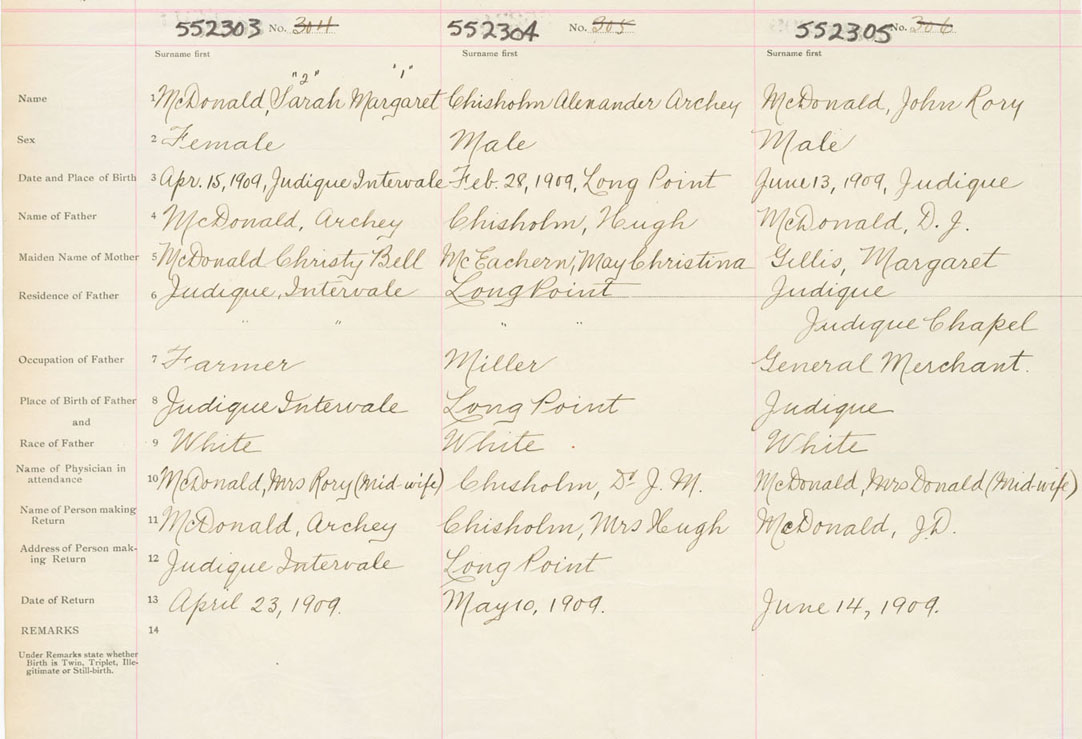 552303 No. 304 552304 No. 305 552305 No. 306
Surname first Surname first Surname first
"2" "1"
Name 1 McDonald, Sarah Margaret Chisholm Alexander Archey McDonald, John Rory
Sex 2 Female Male Male
Date and Place of Birth 3 Apr. 15, 1909, Judique Intervale Feb. 28, 1909, Long Point June 13, 1909, Judique
Name of Father 4 McDonald, Archey Chisholm, Hugh McDonald, D. J.
Maiden Name of Mother 5 McDonald Christy Bell McEachern, May Christina Gillis, Margaret
Residence of Father 6 Judique, Intervale Long Point Judique
" " " " Judique Chapel
Occupation of Father 7 Farmer Miller General Merchant.
Place of Birth of Father 8 Judique Intervale Long Point Judique
and
Race of Father 9 White White White
Name of Physician in
attendance 10 McDonald, Mrs Rory (Mid-wife) Chisholm, Dr J. M. McDonald, Mrs Donald (Mid-wife)
Name of Person making
Return 11 McDonald, Archey Chisholm, Mrs Hugh McDonald, J.D.
Address of Person mak-
ing Return 12 Judique Intervale Long Point
Date of Return 13 April 23, 1909. May 10, 1909. June 14, 1909.
REMARKS 14
Under Remarks state whether
Birth is Twin, Triplet, Ille-
gitimate or Still-birth.